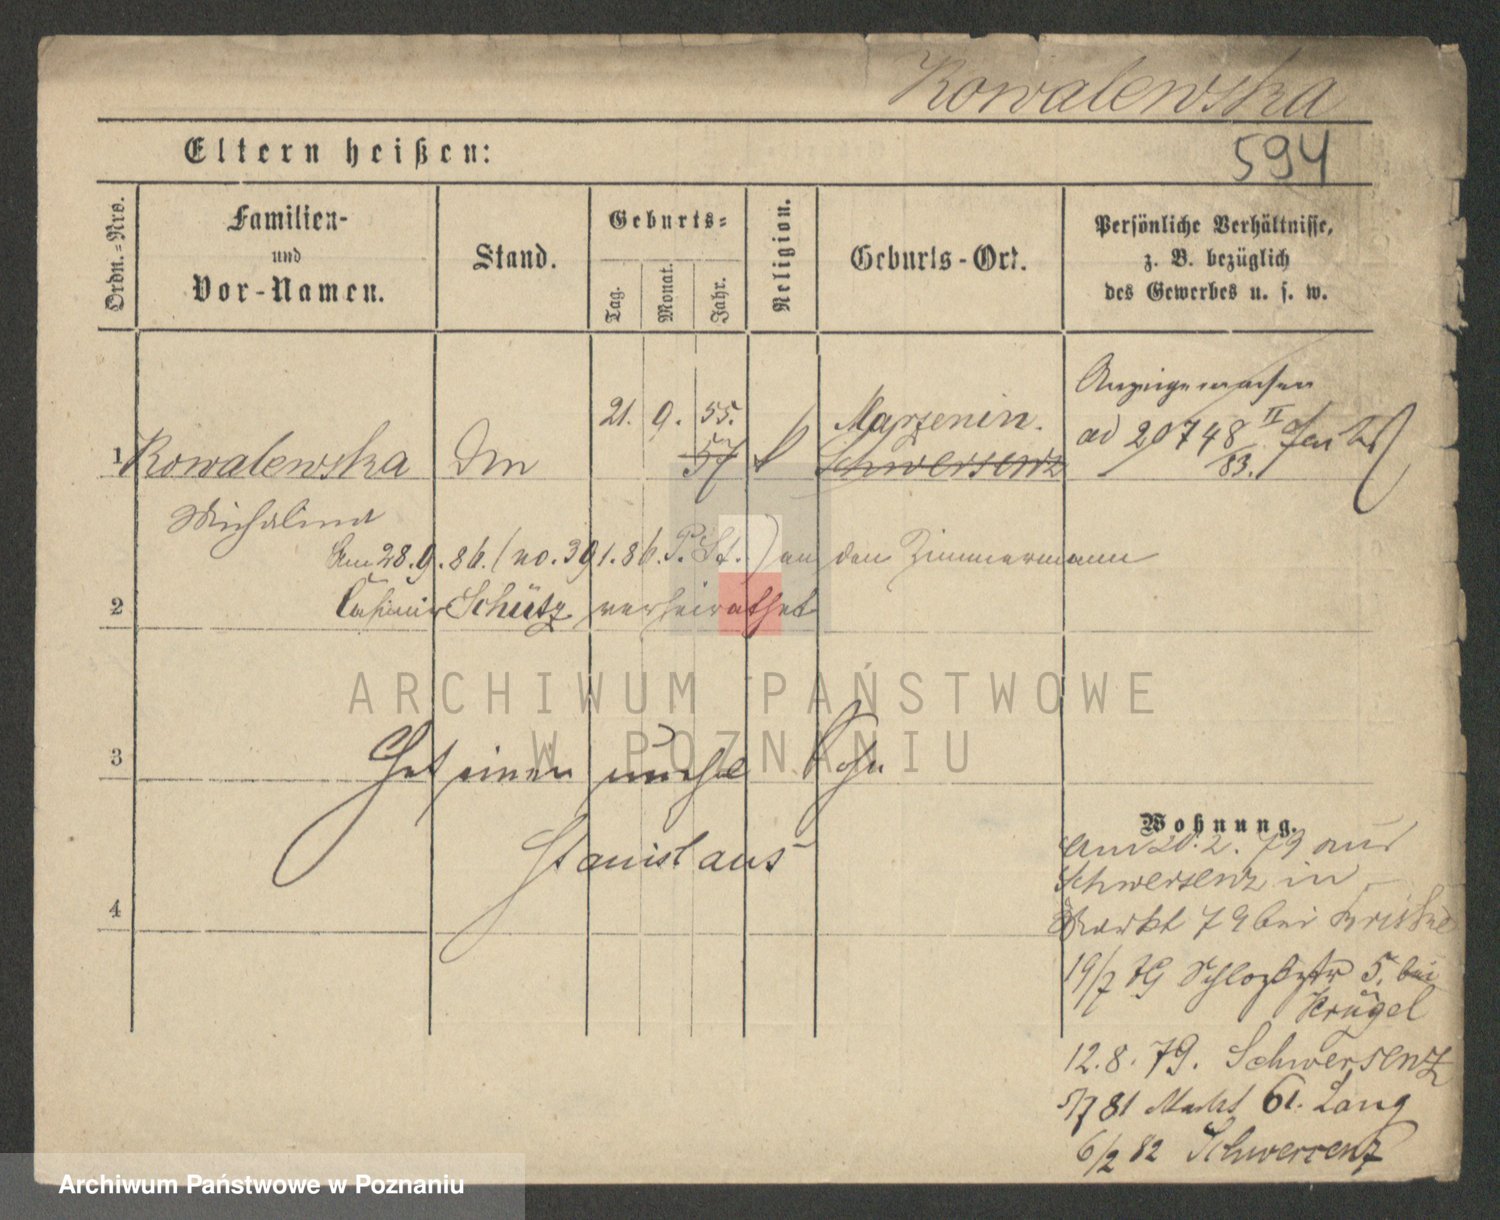 Kowalewska
Eltern heißen:
594
Ordn.-Nrs.
Familien-
und
Vor-Namen.
Stand.
Geburts-
Tag.
Monat.
Jahr.
Religion.
Geburts-Ort.
Persönliche Verhältnisse,
z. B. bezüglich
des Gewerbes u. s. w.
1
Kowalewska
Michalina
21. 9. 55.
57
Marzenin.
Schwersenz
ad 20748 II
83.
Am 28.9.86. (no. 391.86. P. St.) an den Zimmermann
2
Casimir Schütz verheirathet
ARCHIWUM PAŃSTWOWE
W POZNANIU
3
Hat einen unehel Sohn
Stanislaus
4
Wohnung.
Am 20.2.79 aus
Schwersenz in
Markt 79 bei
19/7 79 Schloßstr 5. bei
Krügel
12.8.79. Schwersenz
5/7 81 Markt 61. Lang
6/2 82 Schwersenz
Archiwum Państwowe w Poznaniu